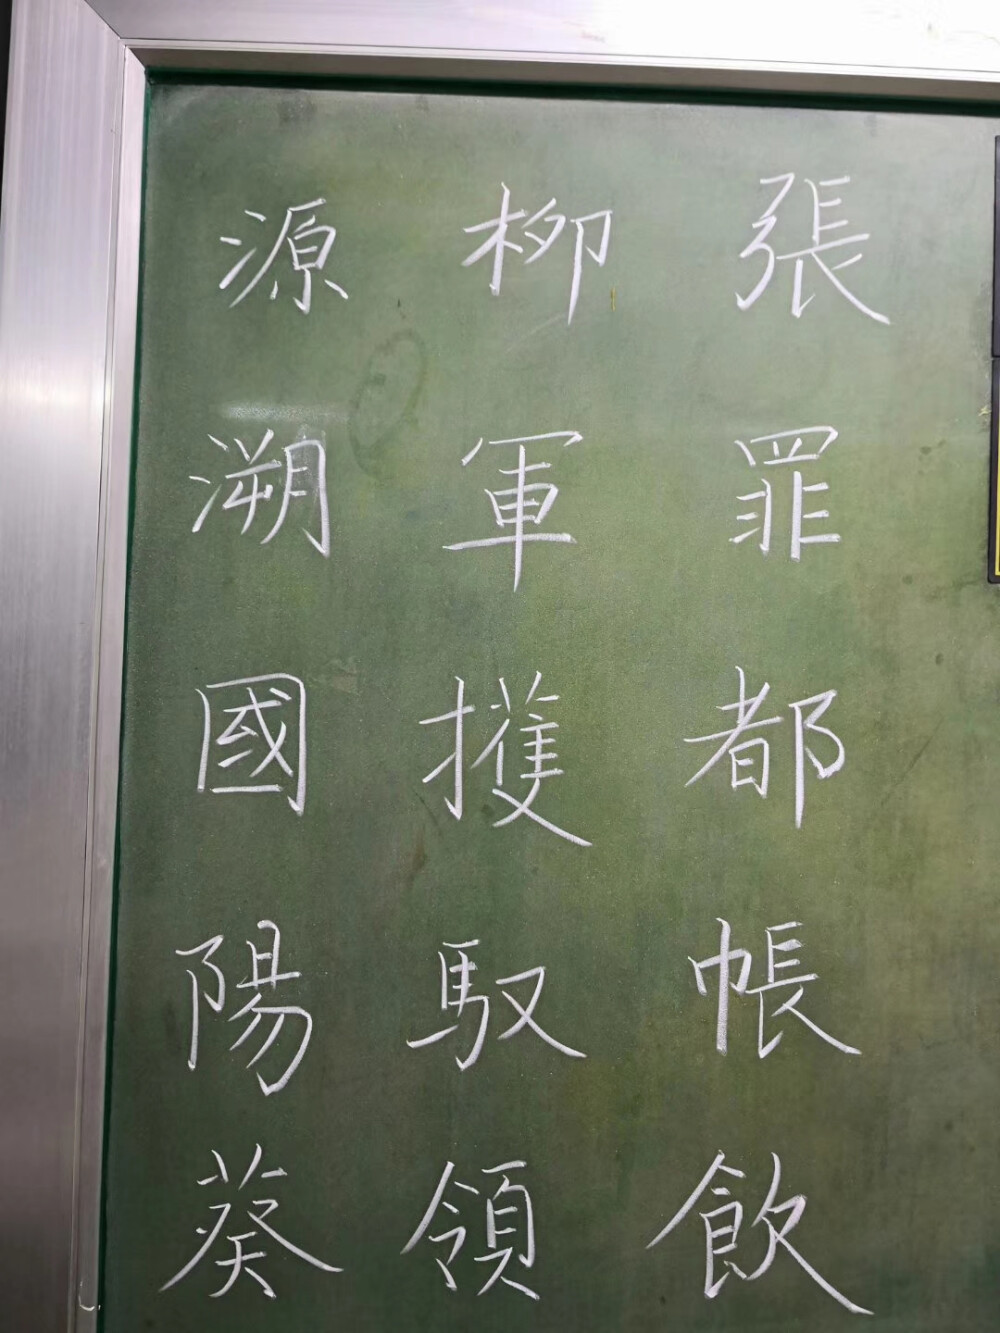 張罪都帳飲
柳軍擭馭領
源溯國陽葵